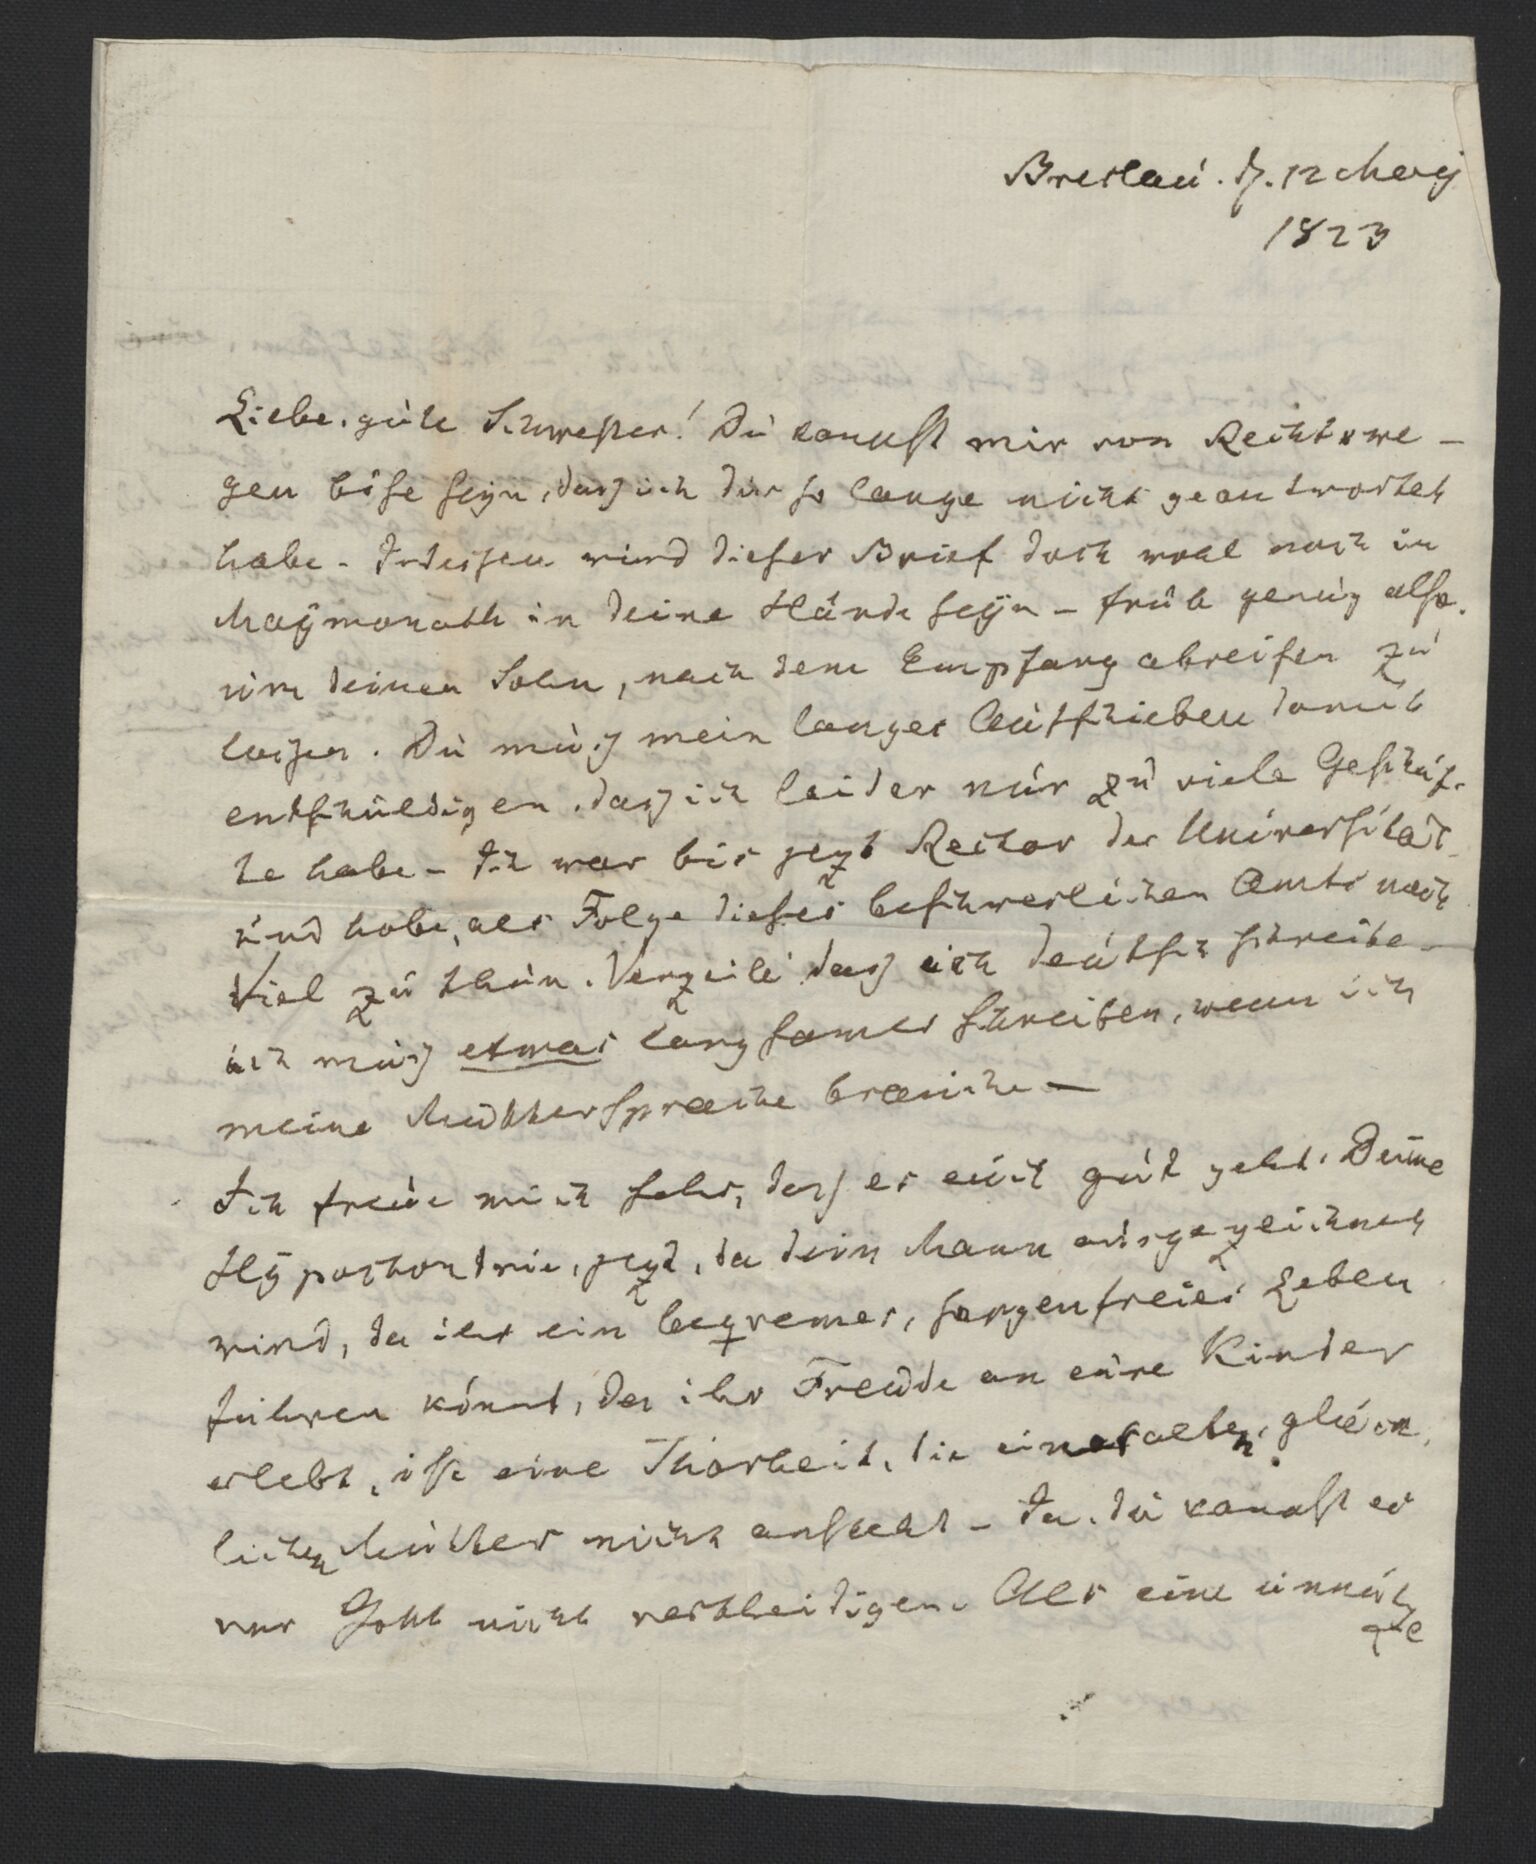 Breslau. d. 12 May
1823
Liebe, gute Schwester! Du kannst mir von Rechtswe-
gen böse seyn, dasz ich dir so lange nicht geantwortet
habe - Indessen wird dieser Brief doch wohl noch im
Maymonath in deine Hände seyn - früh genug also,
um deinen Sohn, nach dem Empfang abreisen zu
lassen. Du musz mein langes Aufschieben damit
entschuldigen, dasz ich leider nur zu viele Geschäf-
te habe - Ich war bis jezt Rector der Universität
und habe, als Folge dieses beschwerlichen Amts noch
viel zu thun. Verzeih dasz ich deutsch schreibe -
ich musz etwas langsamer schreiben, wenn ich
meine Muttersprache brauche -
Ich freue mich sehr, dasz es euch gut geht. Deine
Hypochondrie, jezt, da dein Mann ausgezeichnet
wird, da ihr ein beqvemes, sorgenfreies Leben
führen könnt, da ihr Freude an eure Kinder
erlebt, ist eine Thorheit, die einer alten, glück,
lichen Mutter nicht ansteht - Ja, du kannst es
vor Gott nicht vertheidigen. Als eine unnüt
ze